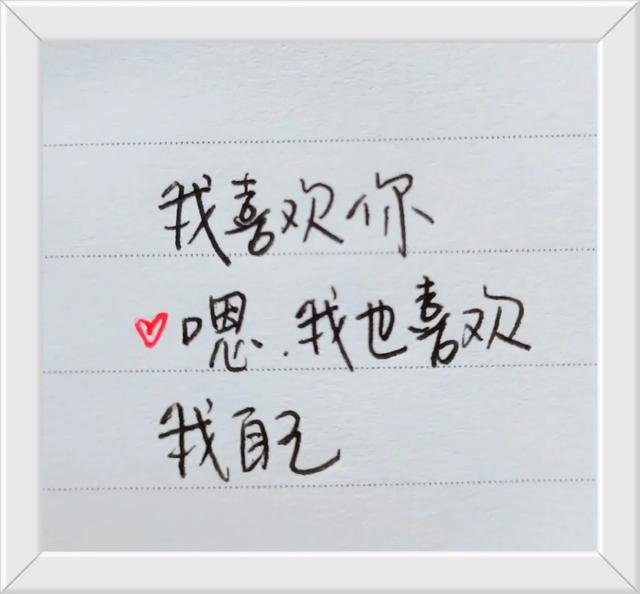 我喜欢你
嗯.我也喜欢
我自己